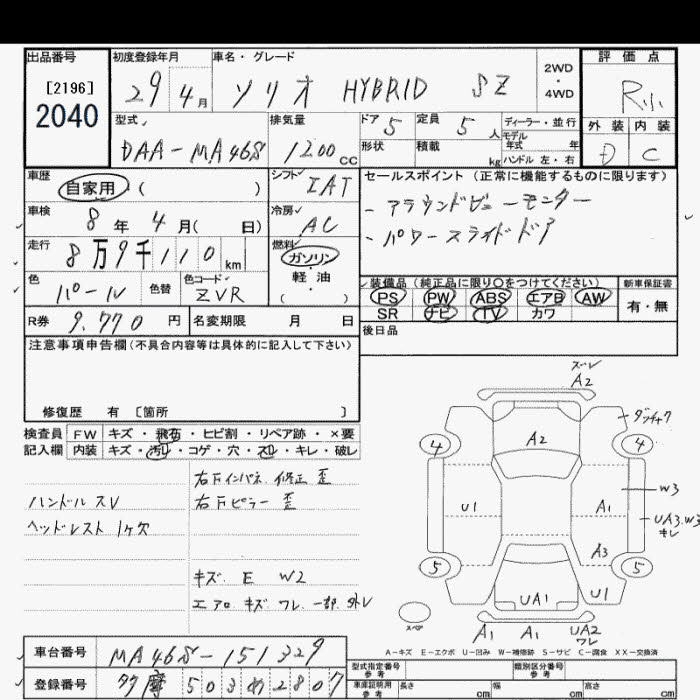 出品番号 初度登録年月 車名・グレード 評価点
[2196] 2040
29 4月 ソリオ HYBRID SZ 2WD・4WD R小
型式 排気量 ドア 5 定員 5人 ディーラー・並行 外装 内装
DAA-MA46S 1200cc 形状 積載 kg モデル年式 年 ハンドル 左・右 D C
車歴 自家用 ( ) シフト IAT セールスポイント (正常に機能するものに限ります)
車検 8年 4月( 日) 冷房 AC - アラウンドビューモニター
走行 8万9千110km 燃料 ガソリン - パワースライドドア
軽・油
( )
色 パール 色替 色コード ZVR 装備品 (純正品に限り○をつけてください) 新車保証書
PS PW ABS エアB AW 有・無
SR ナビ TV カワ
R券 9,770円 名変期限 月 日 後日品
注意事項申告欄(不具合内容等は具体的に記入して下さい)
修復歴 有 [箇所 ]
検査員 FW キズ・飛石・ヒビ割・リペア跡・×要
記入欄 内装 キズ・汚レ・コゲ・穴・スレ・キレ・破レ
右Fインパネ 修正 歪
ハンドル スレ 右Fピラー 歪
ヘッドレスト 1ヶ欠
キズ E W2
エアロ キズ ワレ 一部 外レ
ズレ
A2
4 A2 4
U1 A1 W3
UA3.W3
キレ
A3
5 UA1 U1 5
スペア A1 A1 UA2
ワレ
A-キズ E-エクボ U-凹み W-補修跡 S-サビ C-腐食 XX-交換済
車台番号 MA46S-151329
登録番号 多摩 503 め 2807
型式指定番号 参考 類別区分番号 参考
車庫証明用 参考 長さ cm 幅 cm 高さ cm